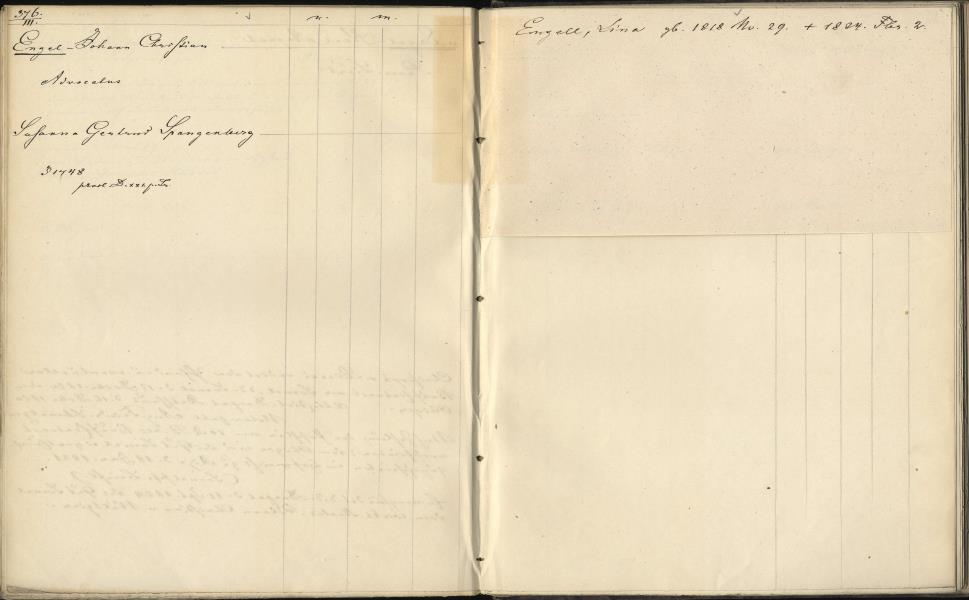 376.
III.
n. m.
Engel, Johann Christian
Advocatus
Susanna Gertrud Spangenberg
1748
Engell, Lina gb. 1818 Nv. 29. + 1824. Fbr. 2.